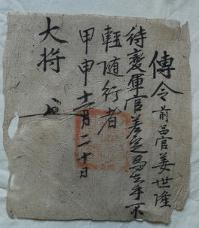 傳令前官姜世隆
待變軍官差定爲去乎不
輕隨行者
甲申十二月二十日
大將